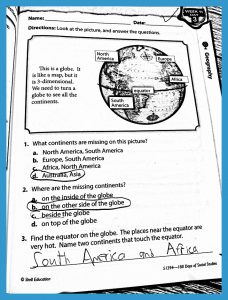 Name:
Date:
WEEK
DAY
3
Directions: Look at the picture, and answer the questions.
Geography
This is a globe. It
is like a map, but it
is 3-dimensional.
We need to turn a
globe to see all the
continents.
North
America
Europe
Africa
equator
South
America
1. What continents are missing on this picture?
a. North America, South America
b. Europe, South America
c. Africa, North America
d. Australia, Asia
2. Where are the missing continents?
a. on the inside of the globe
b. on the other side of the globe
c. beside the globe
d. on top of the globe
3. Find the equator on the globe. The places near the equator are
very hot. Name two continents that touch the equator.
South America and Africa
© Shell Education
51394—180 Days of Social Studies